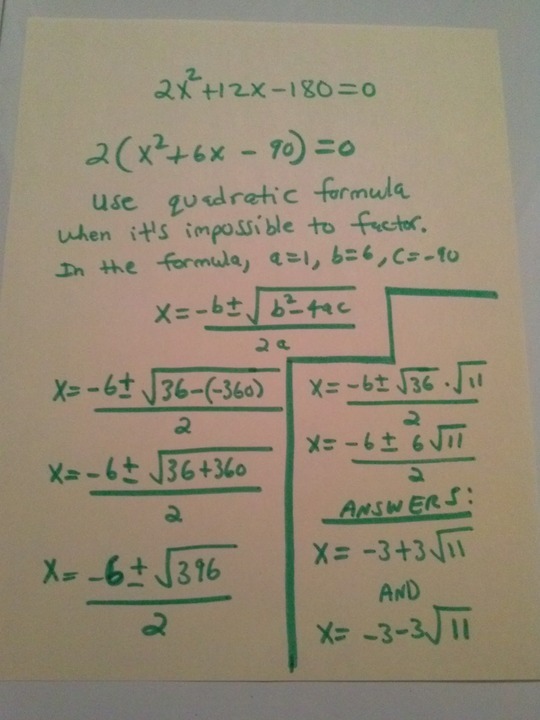 2x²+12x-180=0
2(x²+6x-90)=0
Use quadratic formula
when it's impossible to factor.
In the formula, a=1, b=6, c=-90
x=-b±√b²-4ac
2a
x=-6±√36-(-360)
2
x=-6±√36+360
2
x=-6±√396
2
x=-6±√36·√11
2
x=-6±6√11
2
ANSWERS:
x=-3+3√11
AND
x=-3-3√11